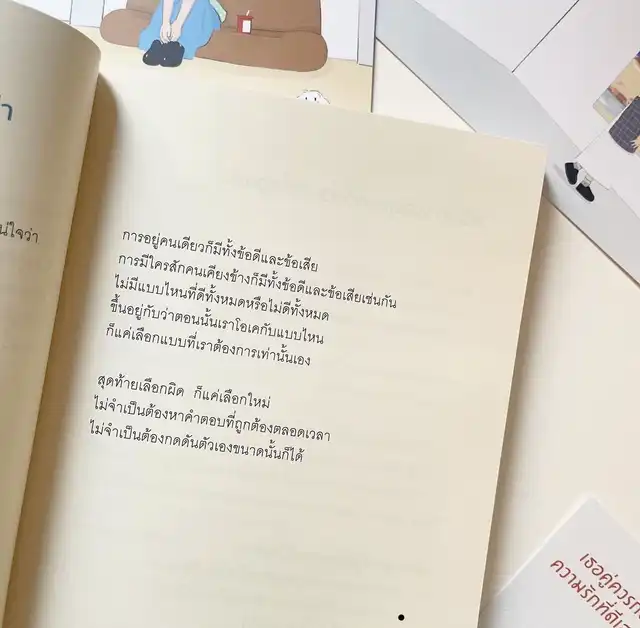 การอยู่คนเดียวก็มีทั้งข้อดีและข้อเสีย
การมีใครสักคนเคียงข้างก็มีทั้งข้อดีและข้อเสียเช่นกัน
ไม่มีแบบไหนที่ดีทั้งหมดหรือไม่ดีทั้งหมด
ขึ้นอยู่กับว่าตอนนั้นเราโอเคกับแบบไหน
ก็แค่เลือกแบบที่เราต้องการเท่านั้นเอง
สุดท้ายเลือกผิด ก็แค่เลือกใหม่
ไม่จำเป็นต้องหาคำตอบที่ถูกต้องตลอดเวลา
ไม่จำเป็นต้องกดดันตัวเองขนาดนั้นก็ได้
เธอคู่ควร
ความรักที่ดี